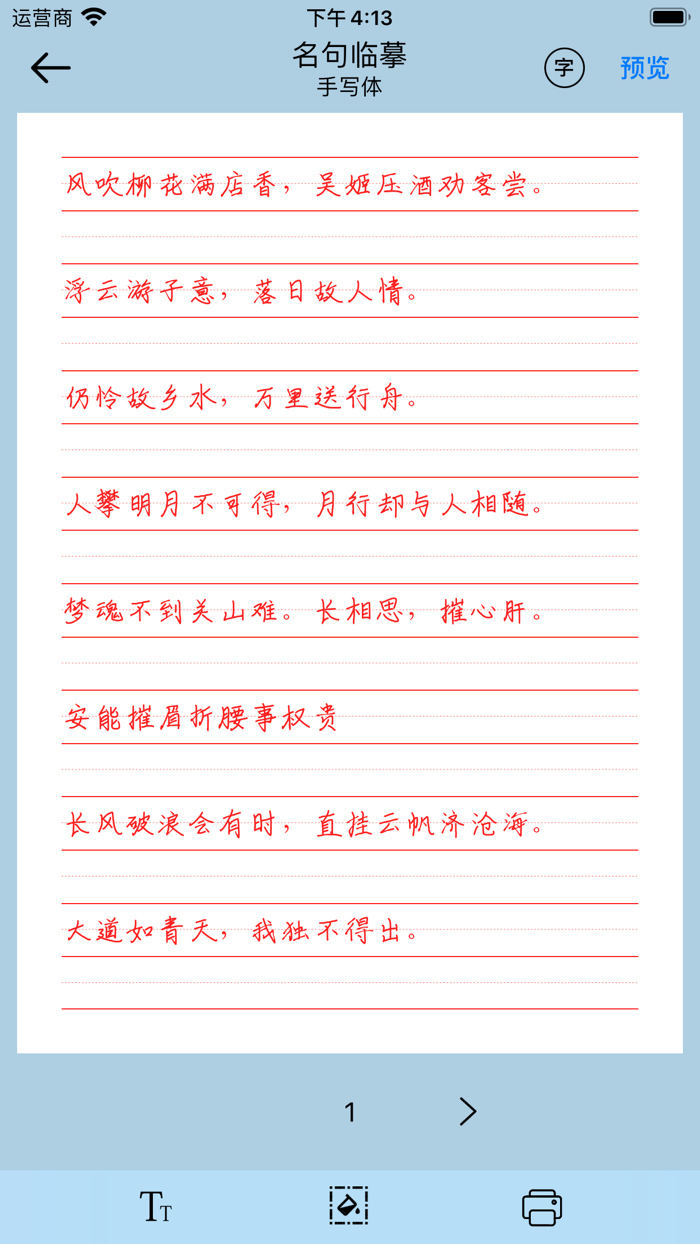 运营商 下午4:13
名句临摹
手写体
字 预览
风吹柳花满店香，吴姬压酒劝客尝。
浮云游子意，落日故人情。
仍怜故乡水，万里送行舟。
人攀明月不可得，月行却与人相随。
梦魂不到关山难。长相思，摧心肝。
安能摧眉折腰事权贵
长风破浪会有时，直挂云帆济沧海。
大道如青天，我独不得出。
1
TT